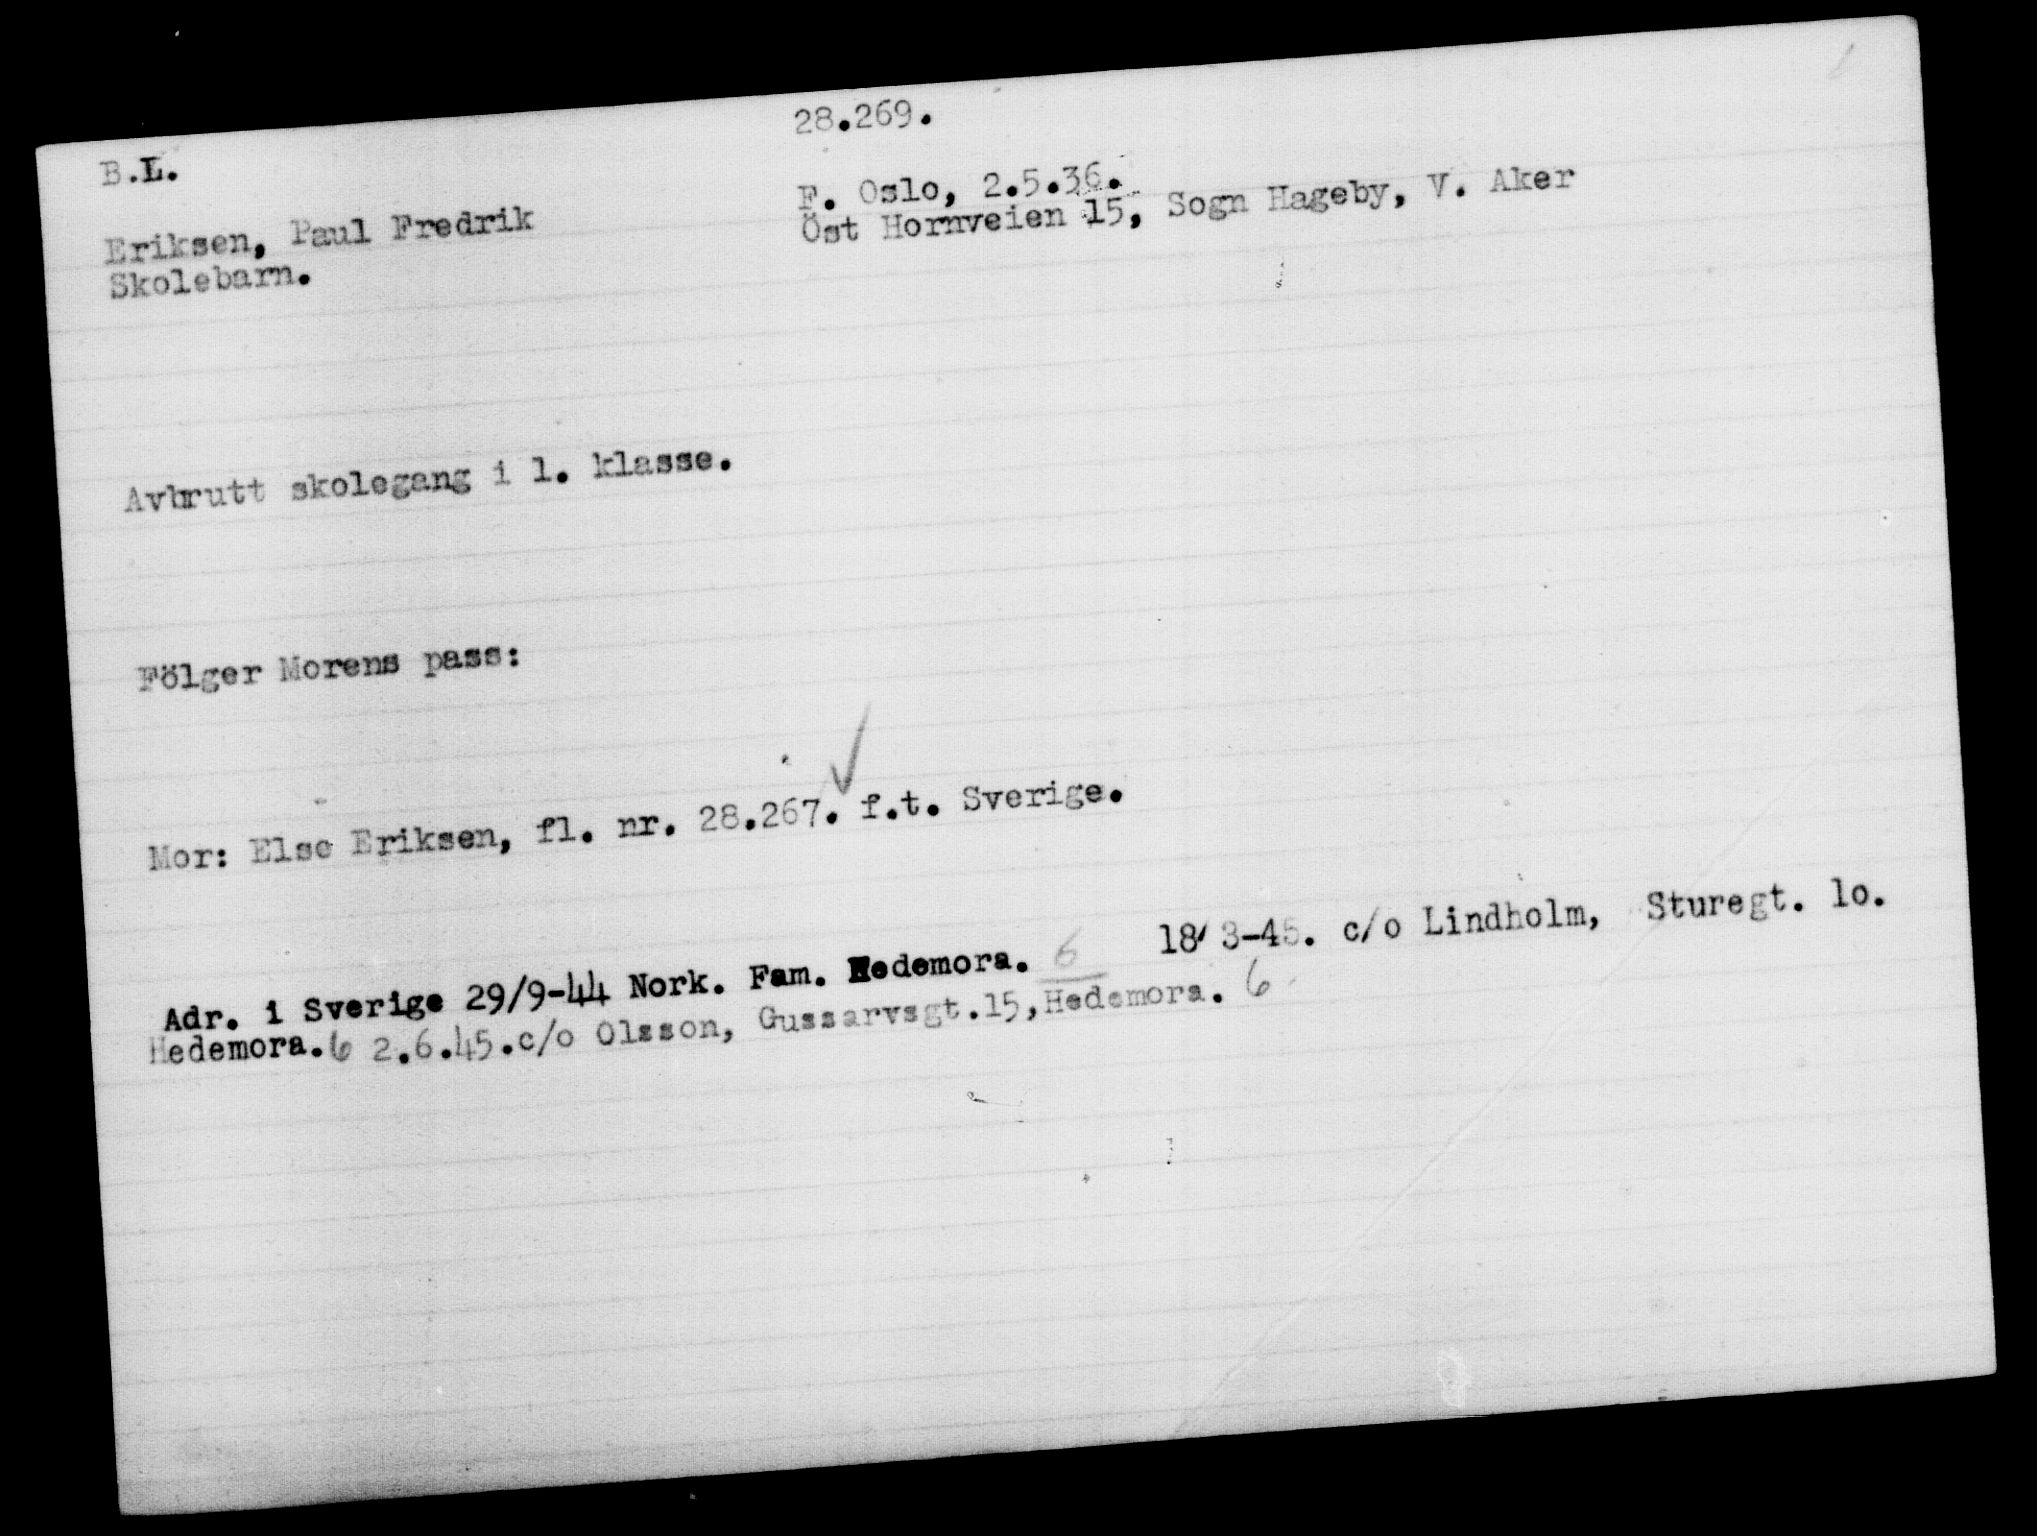 28.269.
B.L.
F. Oslo, 2.5.36.
Eriksen, Paul Fredrik
Öst Hornveien 15, Sogn Hageby, V. Aker
Skolebarn.
Avbrutt skolegang i 1. klasse.
Fölger Morens pass:
Mor: Else Eriksen, fl. nr. 28.267. f.t. Sverige.
Adr. i Sverige 29/9-44 Nork. Fam. Hedemora. 6 18/3-45. c/o Lindholm, Sturegt. 1o.
Hedemora. 6 2.6.45.c/o Olsson, Gussarvsgt.15,Hedemora. 6